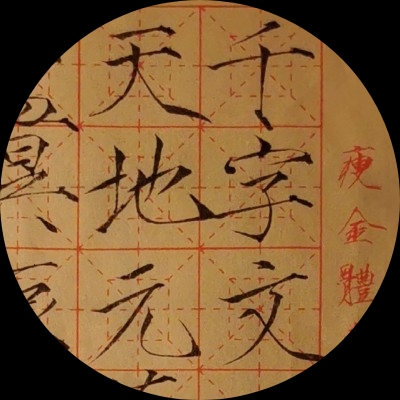 瘦金體
千字文
天地元